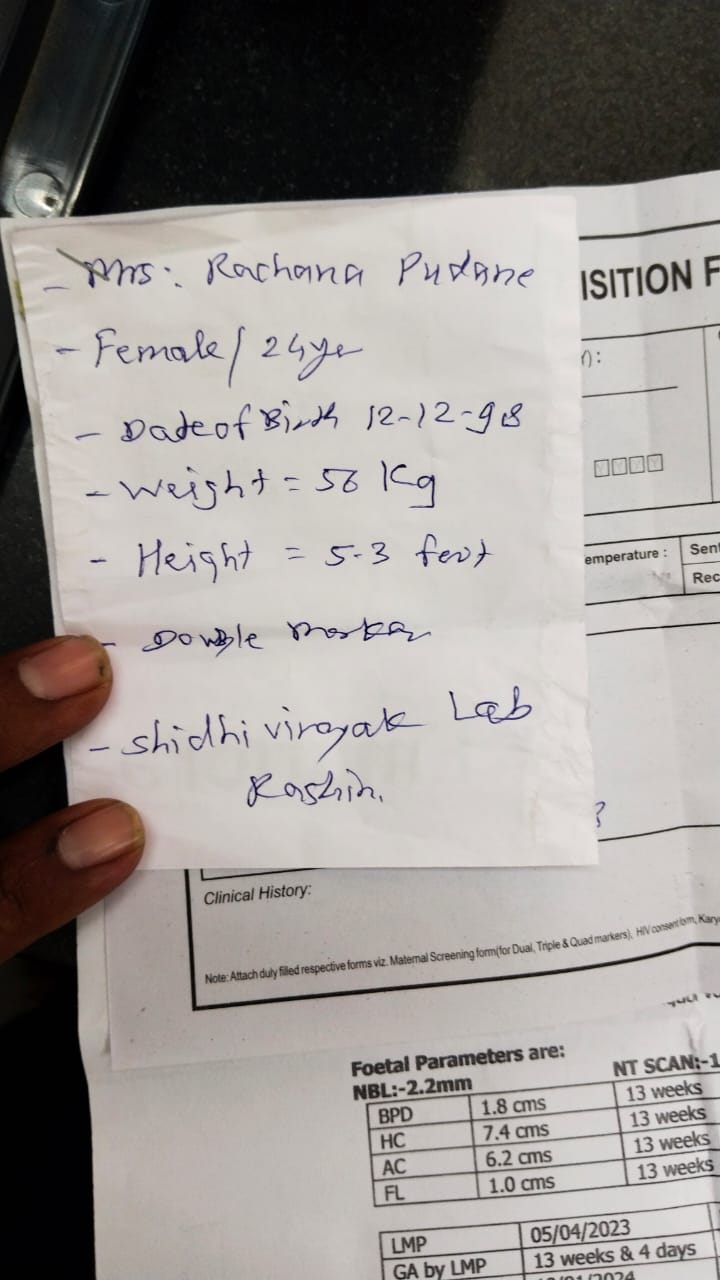 - Mrs: Rachana Pudane
- Female / 24 yr
- Date of Birth 12-12-98
- Weight = 56 Kg
- Height = 5-3 feet
- Double marker
- Shidhi vinayak Lab
Rashin.
ISITION F
):
YYYY
emperature :
Sent
Rec
Clinical History:
Note: Attach duly filled respective forms viz. Maternal Screening form(for Dual, Triple & Quad markers), HIV consent form, Kary
Foetal Parameters are:
NT SCAN:-1
NBL:-2.2mm
BPD 1.8 cms 13 weeks
HC 7.4 cms 13 weeks
AC 6.2 cms 13 weeks
FL 1.0 cms 13 weeks
LMP 05/04/2023
GA by LMP 13 weeks & 4 days
/01/2024